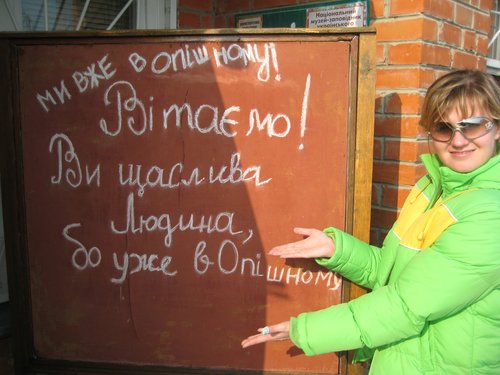 Національний
музей-заповідник
українського
Ми вже в Опішному!
Вітаємо!
Ви щаслива
Людина,
бо уже в Опішному